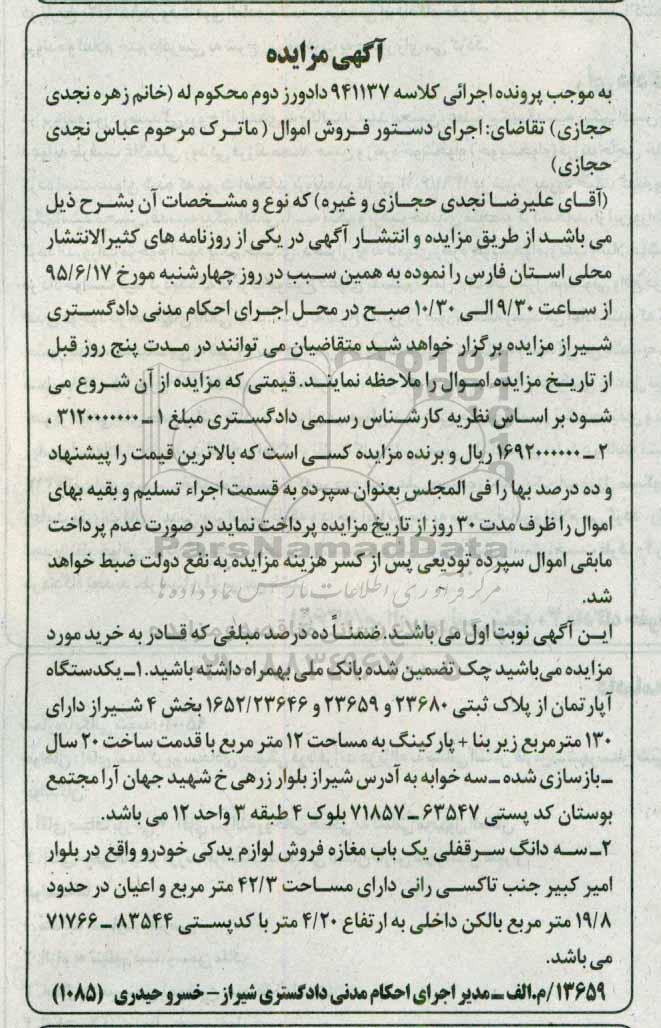 آگهی مزایده
به موجب پرونده اجرائی کلاسه ۹۴۱۱۳۷ دادورز دوم محکوم له (خانم زهره نجدی
حجازی) تقاضای: اجرای دستور فروش اموال (ماترک مرحوم عباس نجدی
حجازی)
(آقای علیرضا نجدی حجازی و غیره) که نوع و مشخصات آن بشرح ذیل
می باشد از طریق مزایده و انتشار آگهی در یکی از روزنامه های کثیرالانتشار
محلی استان فارس را نموده به همین سبب در روز چهارشنبه مورخ ۹۵/۶/۱۷
از ساعت ۹/۳۰ الی ۱۰/۳۰ صبح در محل اجرای احکام مدنی دادگستری
شیراز مزایده برگزار خواهد شد متقاضیان می توانند در مدت پنج روز قبل
از تاریخ مزایده اموال را ملاحظه نمایند. قیمتی که مزایده از آن شروع می
شود بر اساس نظریه کارشناس رسمی دادگستری مبلغ ۱ــ ۳۱۲۰۰۰۰۰۰۰ ،
۲ــ ۱۶۹۲۰۰۰۰۰۰ ریال و برنده مزایده کسی است که بالاترین قیمت را پیشنهاد
و ده درصد بها را فی المجلس بعنوان سپرده به قسمت اجراء تسلیم و بقیه بهای
اموال را ظرف مدت ۳۰ روز از تاریخ مزایده پرداخت نماید در صورت عدم پرداخت
مابقی اموال سپرده تودیعی پس از کسر هزینه مزایده به نفع دولت ضبط خواهد
شد.
این آگهی نوبت اول می باشد. ضمناً ده درصد مبلغی که قادر به خرید مورد
مزایده می‌باشید چک تضمین شده بانک ملی بهمراه داشته باشید. ۱ــ یکدستگاه
آپارتمان از پلاک ثبتی ۲۳۶۸۰ و ۲۳۶۵۹ و ۱۶۵۲/۲۳۶۴۶ بخش ۴ شیراز دارای
۱۳۰ مترمربع زیر بنا + پارکینگ به مساحت ۱۲ متر مربع با قدمت ساخت ۲۰ سال
ــ بازسازی شده ــ سه خوابه به آدرس شیراز بلوار زرهی خ شهید جهان آرا مجتمع
بوستان کد پستی ۶۳۵۴۷ ــ ۷۱۸۵۷ بلوک ۴ طبقه ۳ واحد ۱۲ می باشد.
۲ــ سه دانگ سرقفلی یک باب مغازه فروش لوازم یدکی خودرو واقع در بلوار
امیر کبیر جنب تاکسی رانی دارای مساحت ۴۲/۳ متر مربع و اعیان در حدود
۱۹/۸ متر مربع بالکن داخلی به ارتفاع ۴/۲۰ متر با کدپستی ۸۳۵۴۴ ــ ۷۱۷۶۶
می باشد.
۱۳۶۵۹/م.الف ــ مدیر اجرای احکام مدنی دادگستری شیراز – خسرو حیدری (۱۰۸۵)
ParsNamadData